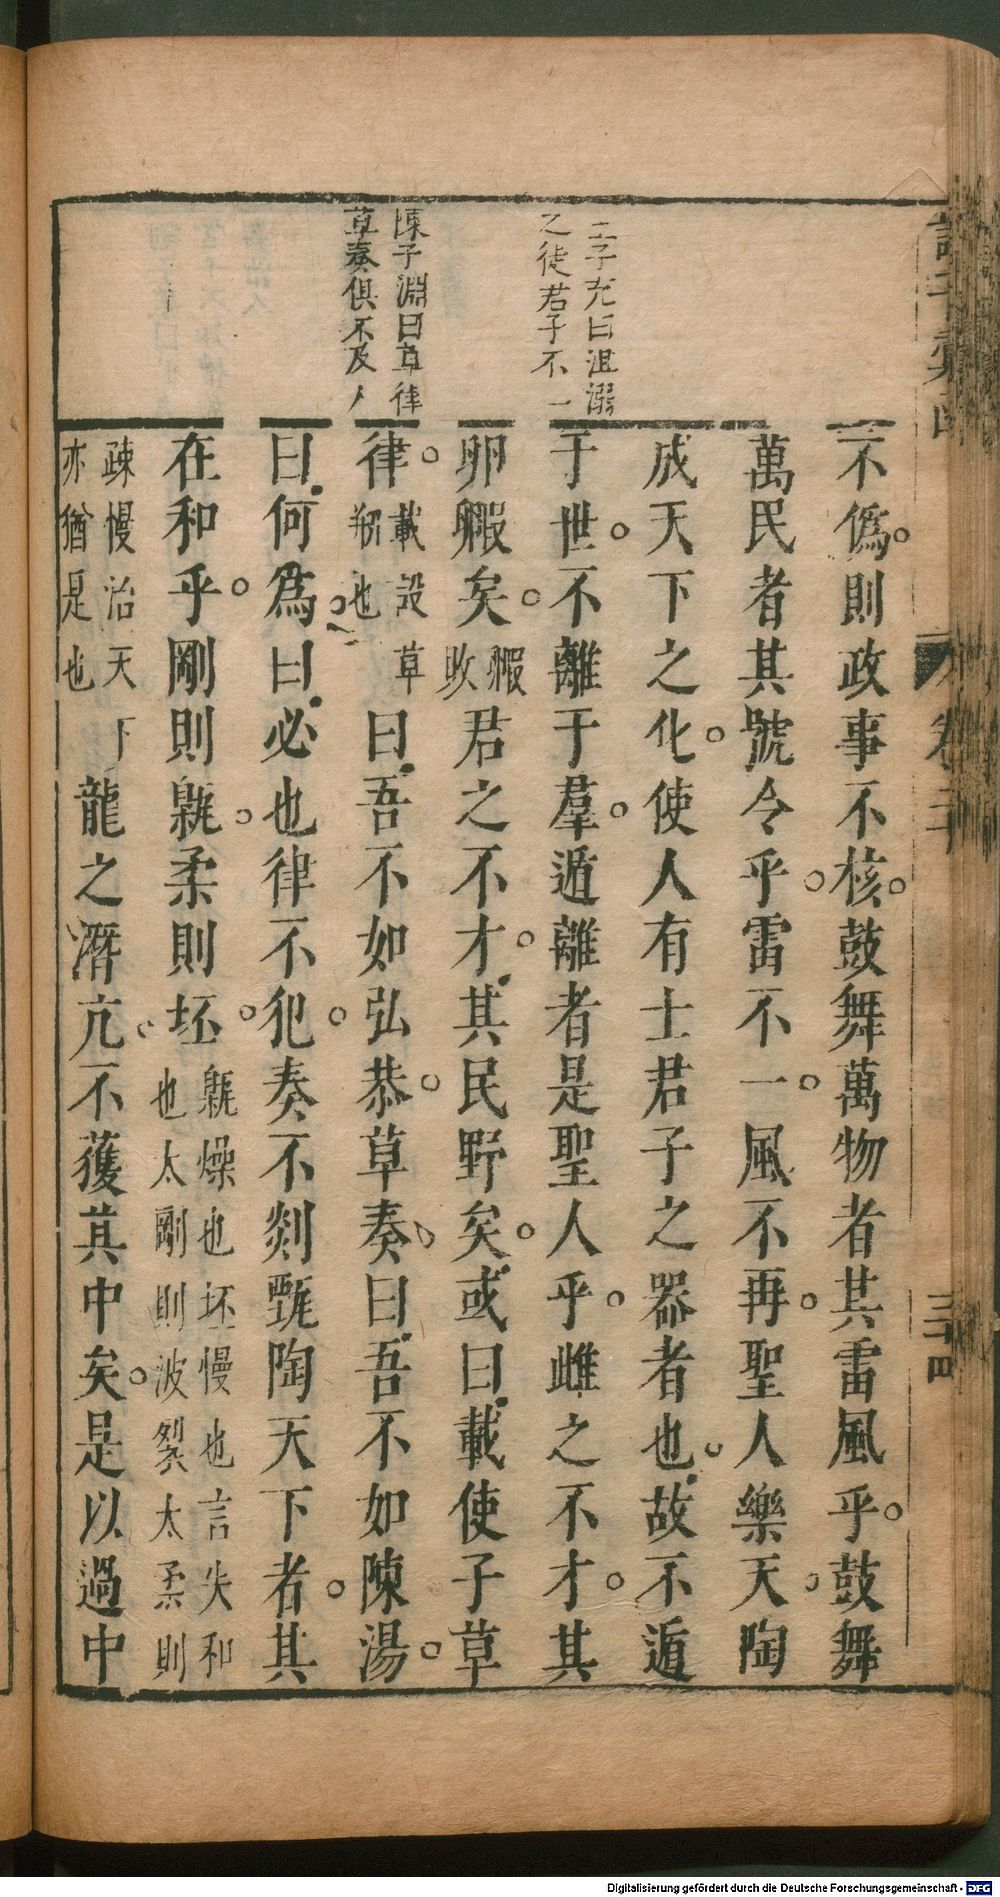 王子充曰沮溺
之徒君子不一
陳子淵曰草律
草奏俱不及人
不僞則政事不核鼓舞萬物者其雷風乎鼓舞
萬民者其號令乎雷不一風不再聖人樂天陶
成天下之化使人有士君子之器者也故不遁
于世不離于羣遁離者是聖人乎雌之不才其
卵毈矣毈敗君之不才其民野矣或曰載使子草
律載設草
翔也曰吾不如弘恭草奏曰吾不如陳湯
曰何爲曰必也律不犯奏不剡甄陶天下者其
在和乎剛則甈柔則坯甈燥也坯慢也言失和
也太剛則波裂太柔則
疎慢治天下
亦猶是也龍之潛亢不獲其中矣是以過中
卷二
三十四
Digitalisierung gefördert durch die Deutsche Forschungsgemeinschaft - DFG